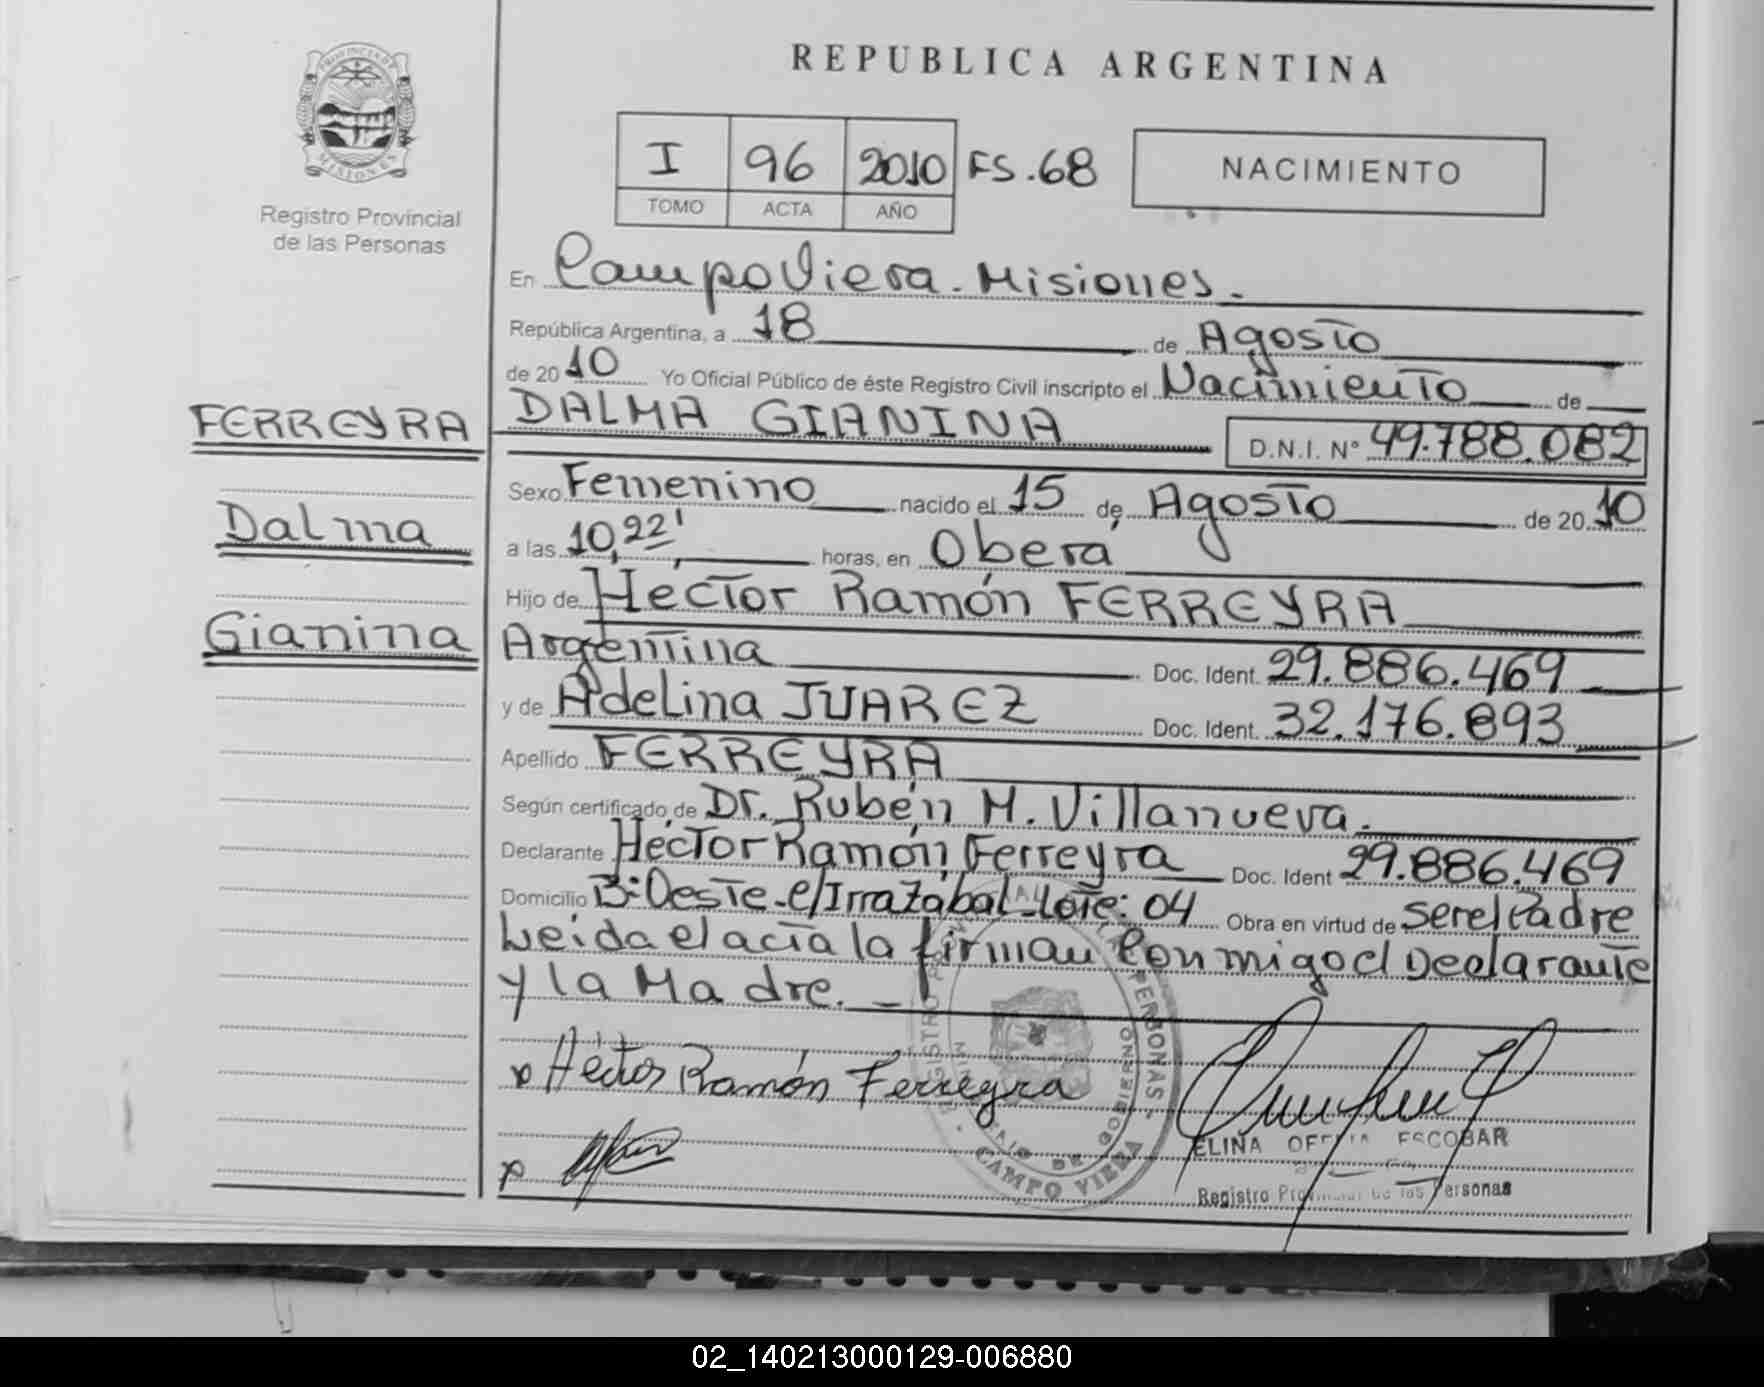 PROVINCIA D
MISIONES
Registro Provincial
de las Personas
REPUBLICA ARGENTINA
I 96 2010 FS.68
TOMO ACTA AÑO
NACIMIENTO
En Campo Viera - Misiones.
República Argentina, a 18 de Agosto
de 20 10 Yo Oficial Público de éste Registro Civil inscripto el Nacimiento de
FERREYRA
Dalma
Gianina
DALMA GIANINA D.N.I. Nº 49.788.082
Sexo Femenino nacido el 15 de Agosto de 20 10
a las 10,22' horas, en Oberá
Hijo de Héctor Ramón FERREYRA
Argentina Doc. Ident. 29.886.469
y de Adelina JUAREZ Doc. Ident. 32.176.893
Apellido FERREYRA
Según certificado de Dr. Rubén M. Villanueva.
Declarante Héctor Ramón Ferreyra Doc. Ident 29.886.469
Domicilio B: Oeste - C/Irrazabal - Lote: 04 Obra en virtud de ser el Padre
Leida el acta la firman conmigo el Declarante
y la Madre. -
x Héctor Ramón Ferreyra
x
PERSONAS
GOBIERNO
CAMPO VIERA
ELINA OFELIA ESCOBAR
Registro Provincial de las Personas
02_140213000129-006880